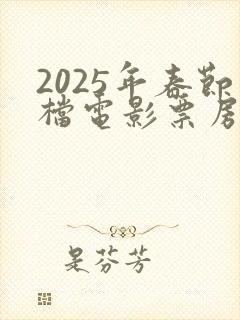 2025年春節
檔電影票房
是芬芳